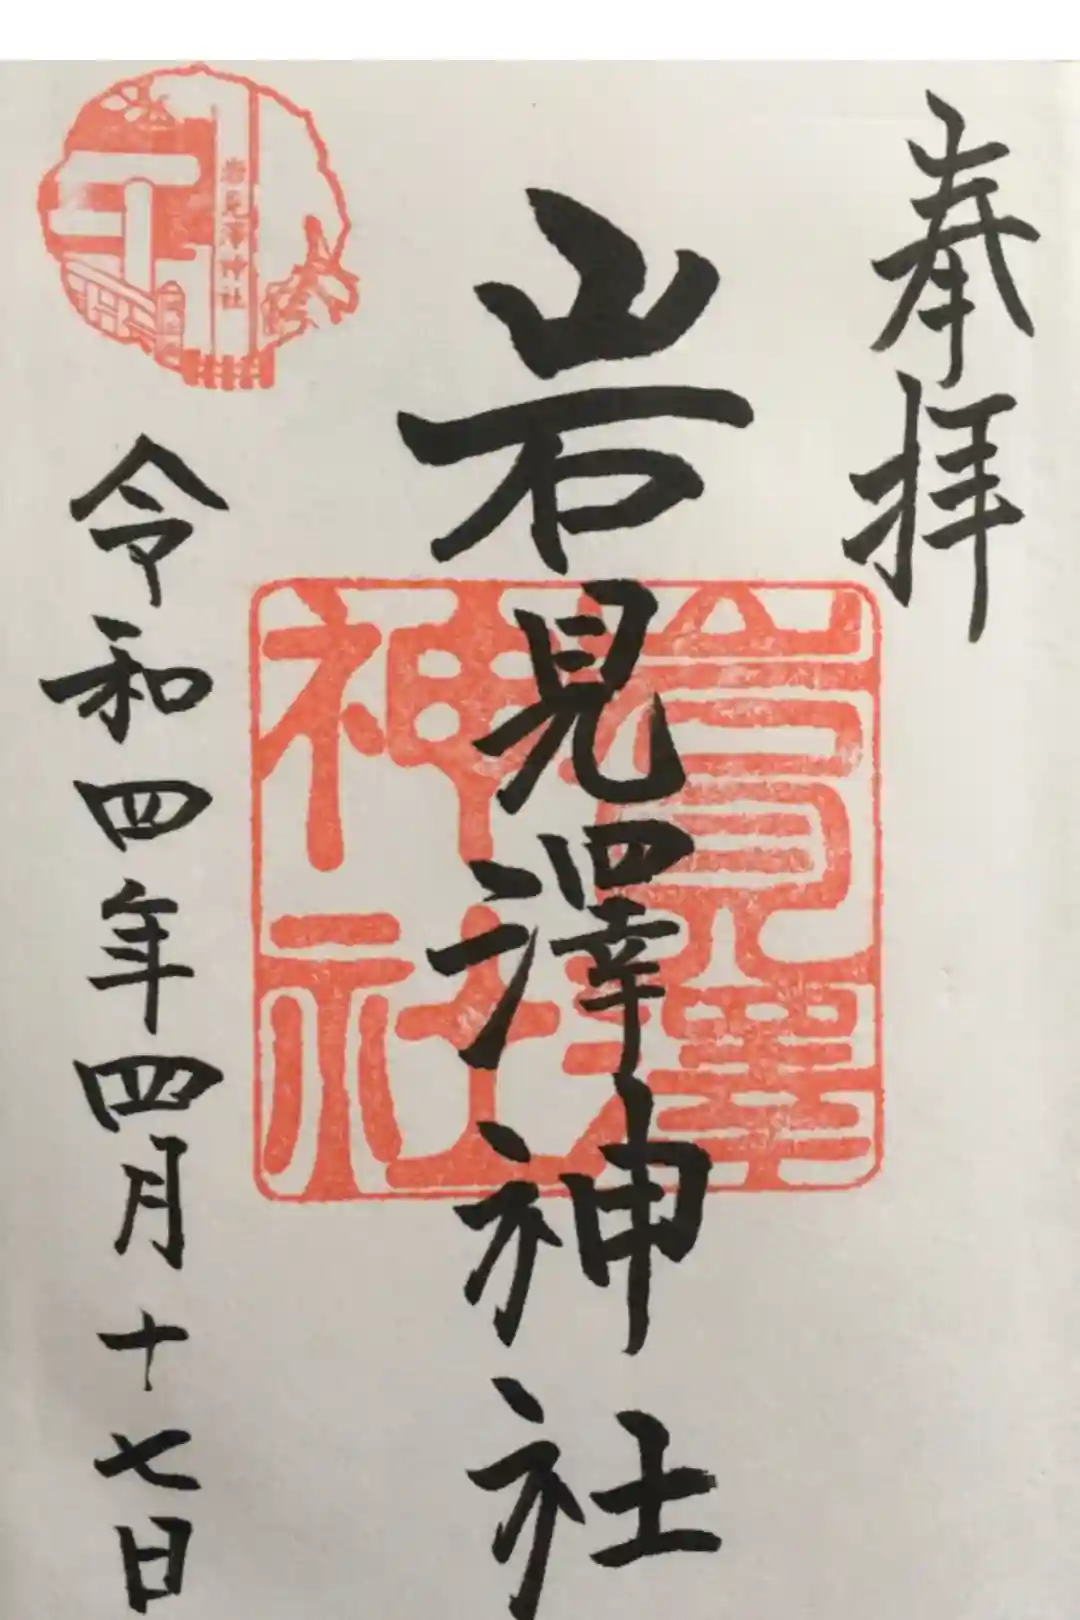 奉拝
岩見澤神社
岩見澤神社
岩見澤神社
令和四年四月十七日